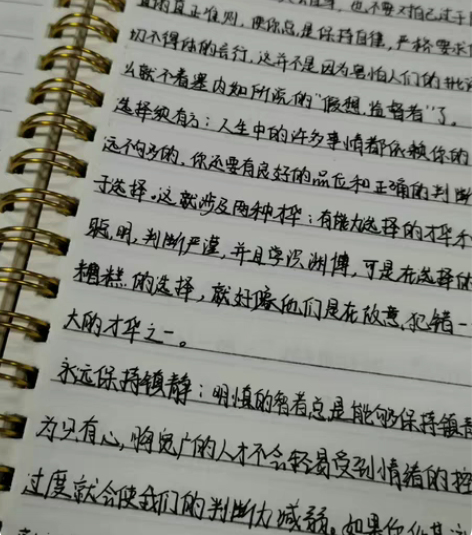 真正准则,使你总是保持自律,严格要求
切不得体的言行,这并不是因为害怕人们的批
么就不着塞内加所说的“假想监督者”了。
选择须有方:人生中的许多事情都依赖你的
远不够的,你还要有良好的品位和正确的判断
于选择。这就涉及两种才华:有能力选择的才华
聪明,判断严谨,并且学识渊博,可是在选择
糟糕的选择,就好像他们是在故意犯错一
大的才华之一。
永远保持镇静:明慎的智者总是能够保持镇静
为只有心胸宽广的人才不会轻易受到情绪的控
过度就会使我们的判断力减弱。如果你